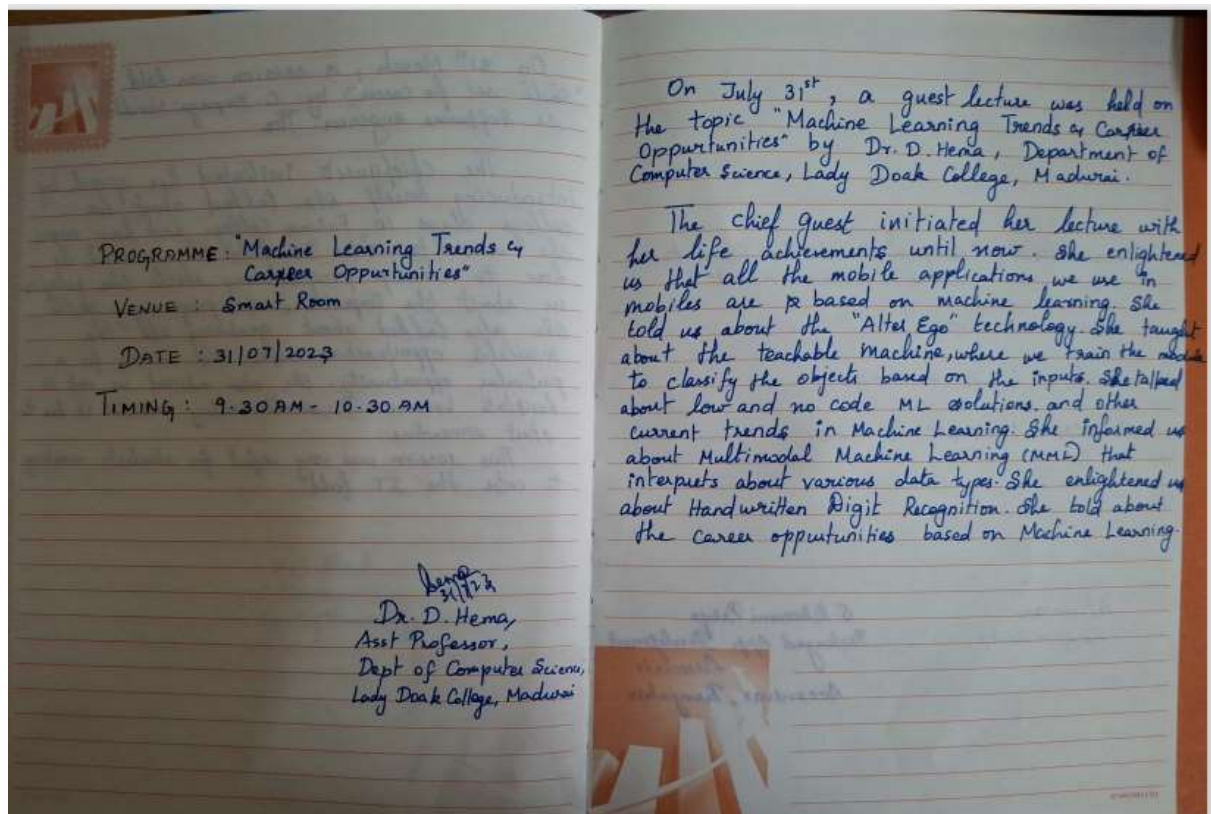 PROGRAMME : "Machine Learning Trends &
Career Oppurtunities"
VENUE : Smart Room
DATE : 31/07/2023
TIMING : 9.30 AM - 10.30 AM
Hema
31/7/23
Dr. D. Hema,
Asst Professor,
Dept of Computer Science,
Lady Doak College, Madurai
On July 31st, a guest lecture was held on
the topic "Machine Learning Trends & Carrier
Oppurtunities" by Dr. D. Hema, Department of
Computer Science, Lady Doak College, Madurai.
The chief guest initiated her lecture with
her life achievements until now. She enlightened
us that all the mobile applications we use in
mobiles are based on machine learning. She
told us about the "Alter Ego" technology. She taught
about the teachable machine, where we train the module
to classify the objects based on the inputs. She talked
about low and no code ML solutions. and other
current trends in Machine Learning. She informed us
about Multimodal Machine Learning (MML) that
interprets about various data types. She enlightened us
about Handwritten Digit Recognition. She told about
the career oppurtunities based on Machine Learning.